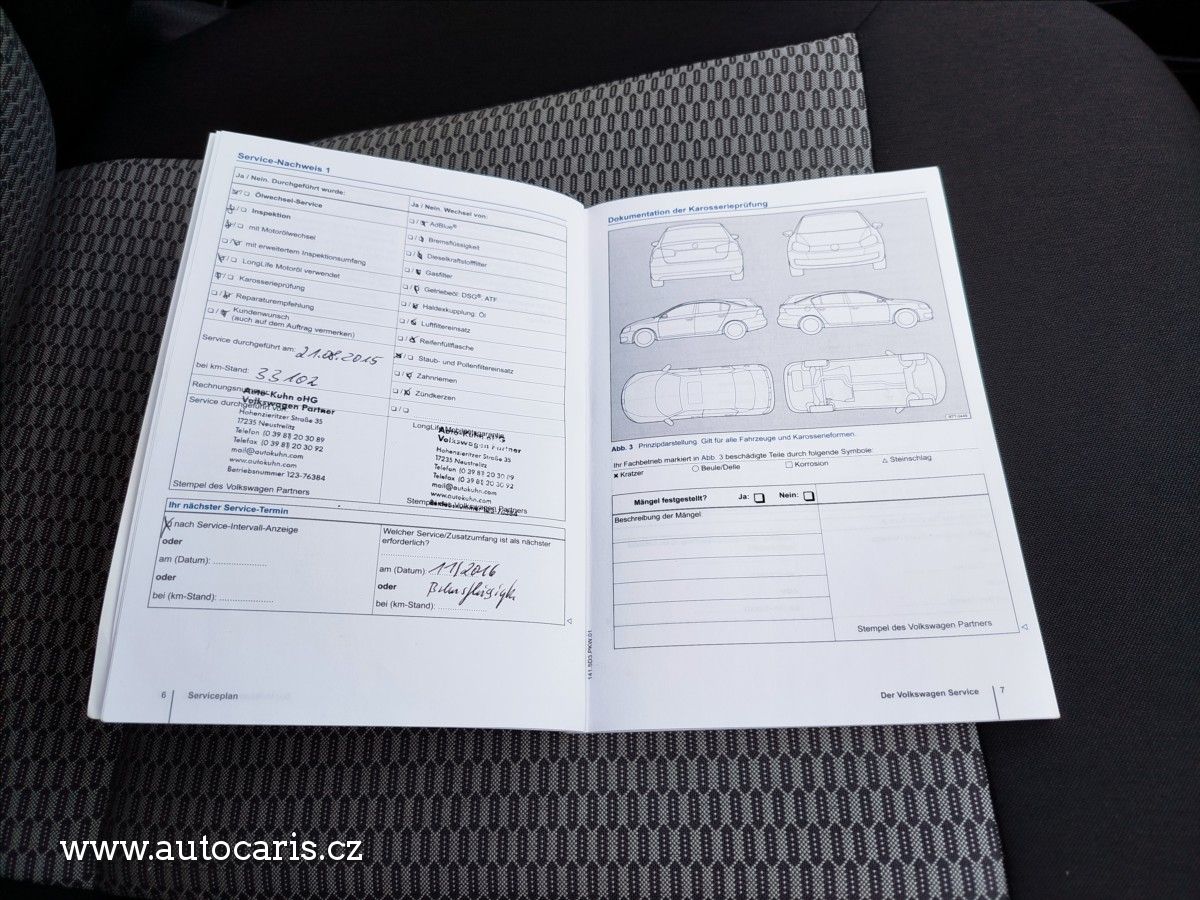 Service-Nachweis 1
Ja / Nein. Durchgeführt wurde:
Ölwechsel-Service
Inspektion
mit Motorölwechsel
mit erweitertem Inspektionsumfang
LongLife Motoröl verwendet
Karosserieprüfung
Reparaturempfehlung
Kundenwunsch
(auch auf dem Auftrag vermerken)
Service durchgeführt am: 21.08.2015
bei km-Stand: 33102
Auto-Kuhn oHG
Volkswagen Partner
Hohenzieritzer Straße 35
17235 Neustrelitz
Telefon (0 39 81) 20 30 89
Telefax (0 39 81) 20 30 92
mail@autokuhn.com
www.autokuhn.com
Betriebsnummer 123-76384
Stempel des Volkswagen Partners
Ja / Nein. Wechsel von:
AdBlue®
Bremsflüssigkeit
Dieselkraftstofffilter
Gasfilter
Getriebeöl: DSG®, ATF
Haldexkupplung: Öl
Luftfiltereinsatz
Reifenfüllflasche
Staub- und Pollenfiltereinsatz
Zahnriemen
Zündkerzen
Volkswagen Partner
Hohenzieritzer Straße 35
17235 Neustrelitz
Telefon (0 39 81) 20 30 89
Telefax (0 39 81) 20 30 92
mail@autokuhn.com
www.autokuhn.com
Stempel des Volkswagen Partners
Ihr nächster Service-Termin
nach Service-Intervall-Anzeige
oder
am (Datum):
oder
bei (km-Stand):
Welcher Service/Zusatzumfang ist als nächster
erforderlich?
am (Datum): 11/2016
oder
bei (km-Stand):
6 Serviceplan
141.5D3.PKW.01
Dokumentation der Karosserieprüfung
Abb. 3 Prinzipdarstellung. Gilt für alle Fahrzeuge und Karosserieformen.
Ihr Fachbetrieb markiert in Abb. 3 beschädigte Teile durch folgende Symbole:
Kratzer Beule/Delle Korrosion Steinschlag
Mängel festgestellt? Ja: Nein:
Beschreibung der Mängel:
Stempel des Volkswagen Partners
Der Volkswagen Service 7
www.autocaris.cz